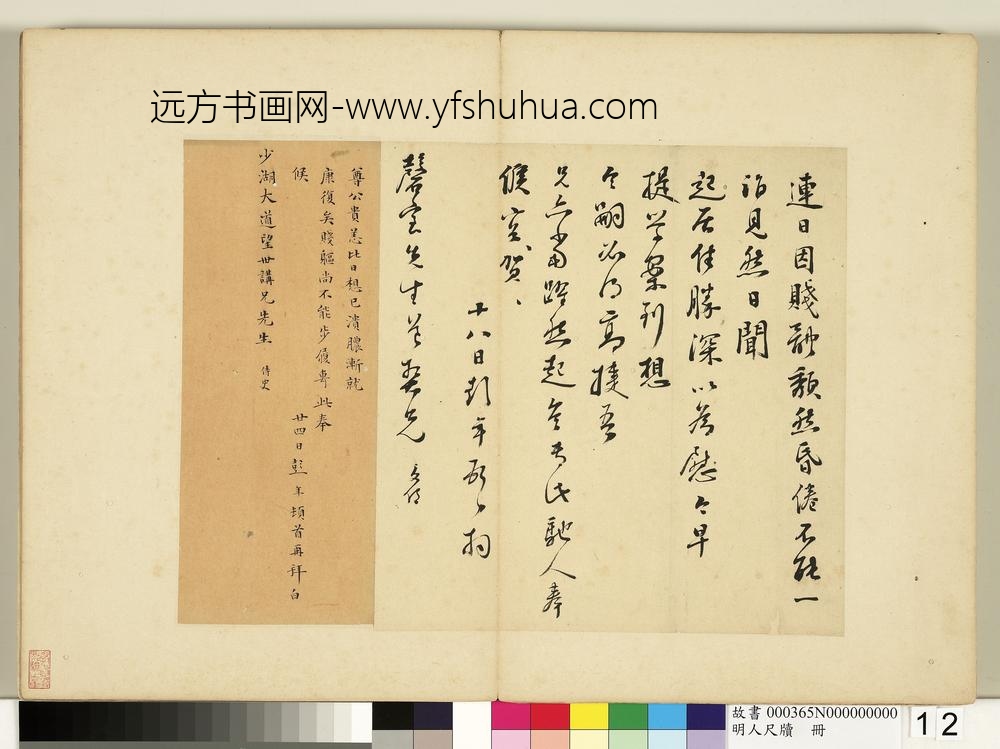 远方书画网-www.yfshuhua.com
連日因賤
然昏倦不能一
詣見然日聞
起居佳勝深以為慰今早
提學案到想
令嗣必得高捷吾
兄
馳人奉
候
賀
十八日彭年
磬室先生
兄
尊公貴恙比日想已潰膿漸就
康復矣賤軀尚不能步履專此奉
候
廿四日彭年頓首再拜白
少湖大道望世講兄先生 侍史
故書 000365N000000000
明人尺牘 冊
12